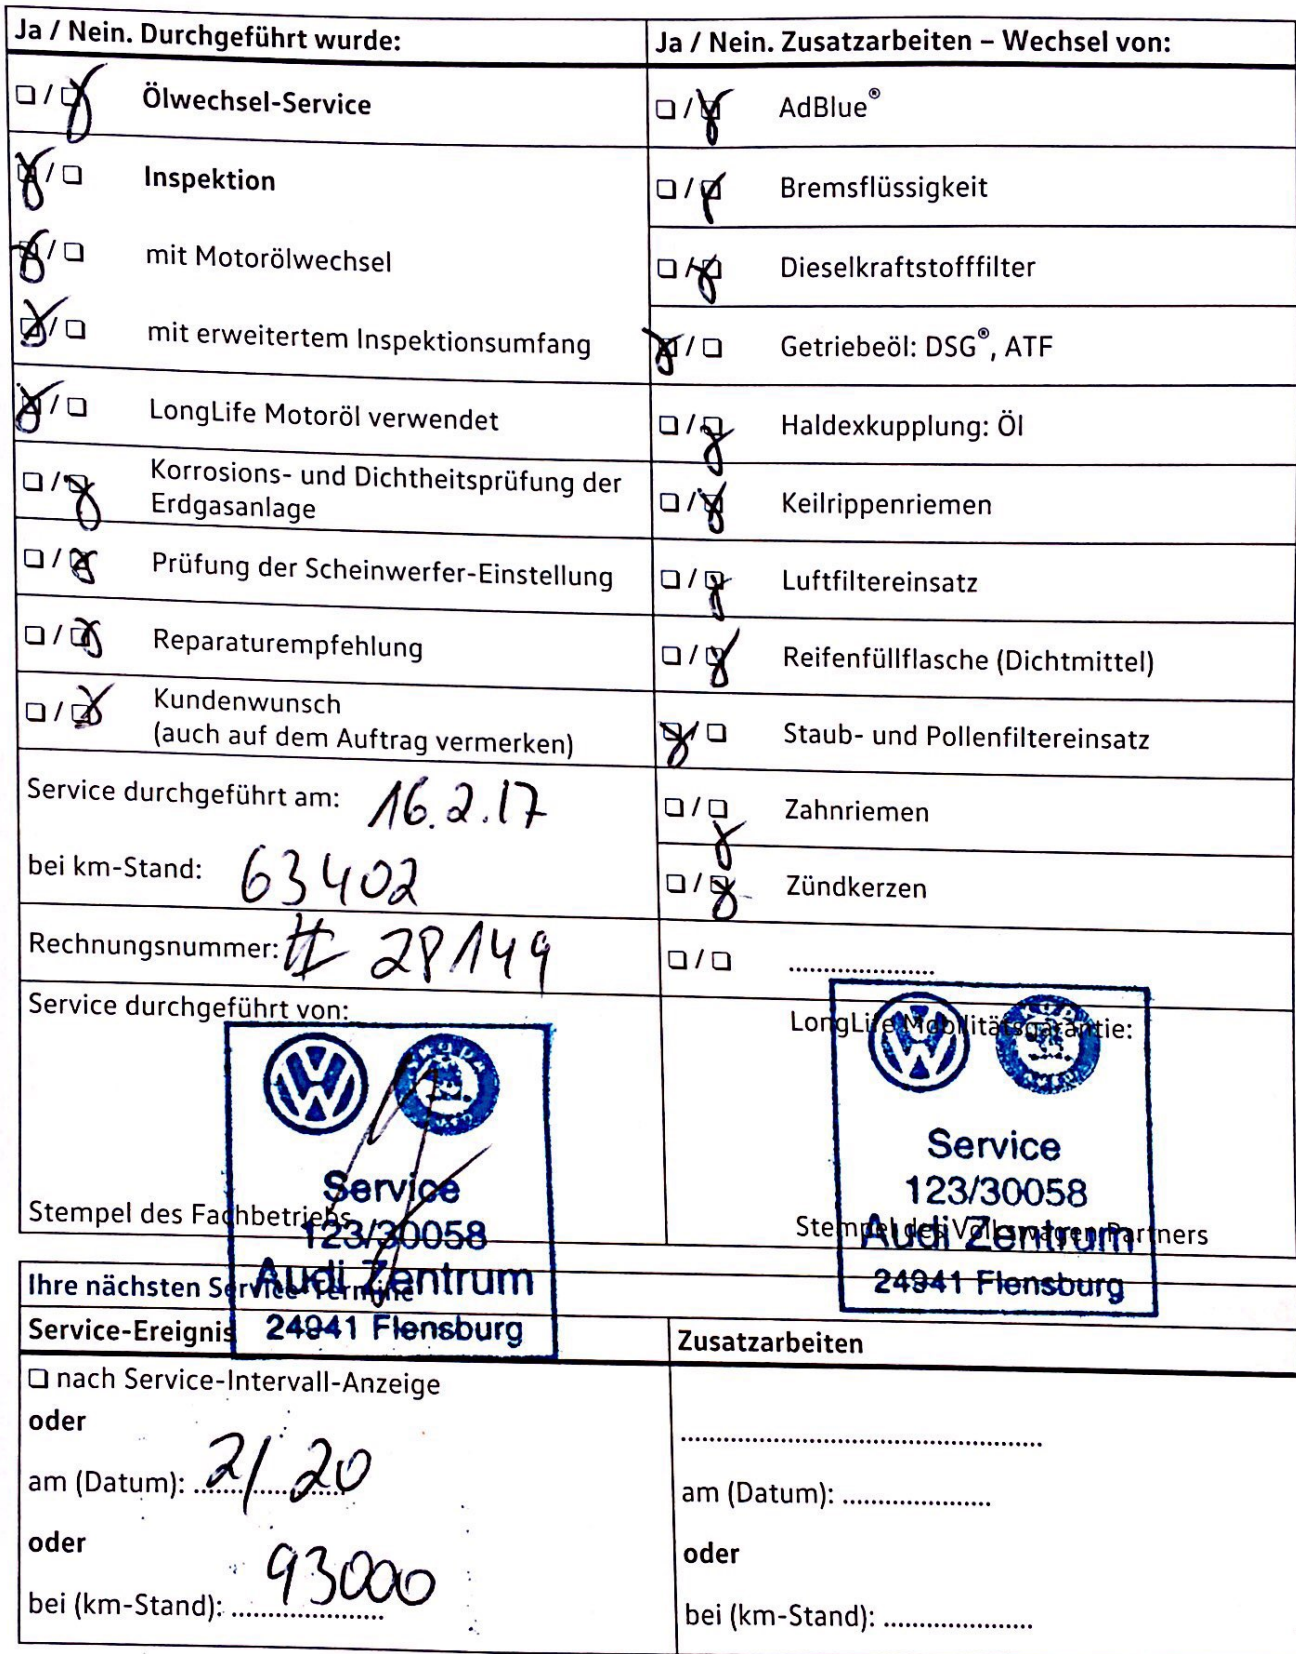 Ja / Nein. Durchgeführt wurde:
☐ / ☒ Ölwechsel-Service
☒ / ☐ Inspektion
☒ / ☐ mit Motorölwechsel
☒ / ☐ mit erweitertem Inspektionsumfang
☒ / ☐ LongLife Motoröl verwendet
☐ / ☒ Korrosions- und Dichtheitsprüfung der
Erdgasanlage
☐ / ☒ Prüfung der Scheinwerfer-Einstellung
☐ / ☒ Reparaturempfehlung
☐ / ☒ Kundenwunsch
(auch auf dem Auftrag vermerken)
Service durchgeführt am: 16.2.17
bei km-Stand: 63402
Rechnungsnummer: # 28149
Service durchgeführt von:
Service
Stempel des Fachbetriebs
123/30058
Audi Zentrum
24941 Flensburg
Ja / Nein. Zusatzarbeiten – Wechsel von:
☐ / ☒ AdBlue®
☐ / ☒ Bremsflüssigkeit
☐ / ☒ Dieselkraftstofffilter
☒ / ☐ Getriebeöl: DSG®, ATF
☐ / ☒ Haldexkupplung: Öl
☐ / ☒ Keilrippenriemen
☐ / ☒ Luftfiltereinsatz
☐ / ☒ Reifenfüllflasche (Dichtmittel)
☒ / ☐ Staub- und Pollenfiltereinsatz
☐ / ☒ Zahnriemen
☐ / ☒ Zündkerzen
☐ / ☐ .....................
LongLife Mobilitätsgarantie:
Service
123/30058
Stempel des Volkswagen Partners
Audi Zentrum
24941 Flensburg
Ihre nächsten Service-Termine
Service-Ereignis
☐ nach Service-Intervall-Anzeige
oder
am (Datum): 2/20
oder
bei (km-Stand): 93000
Zusatzarbeiten
..................................................
am (Datum): .....................
oder
bei (km-Stand): .....................